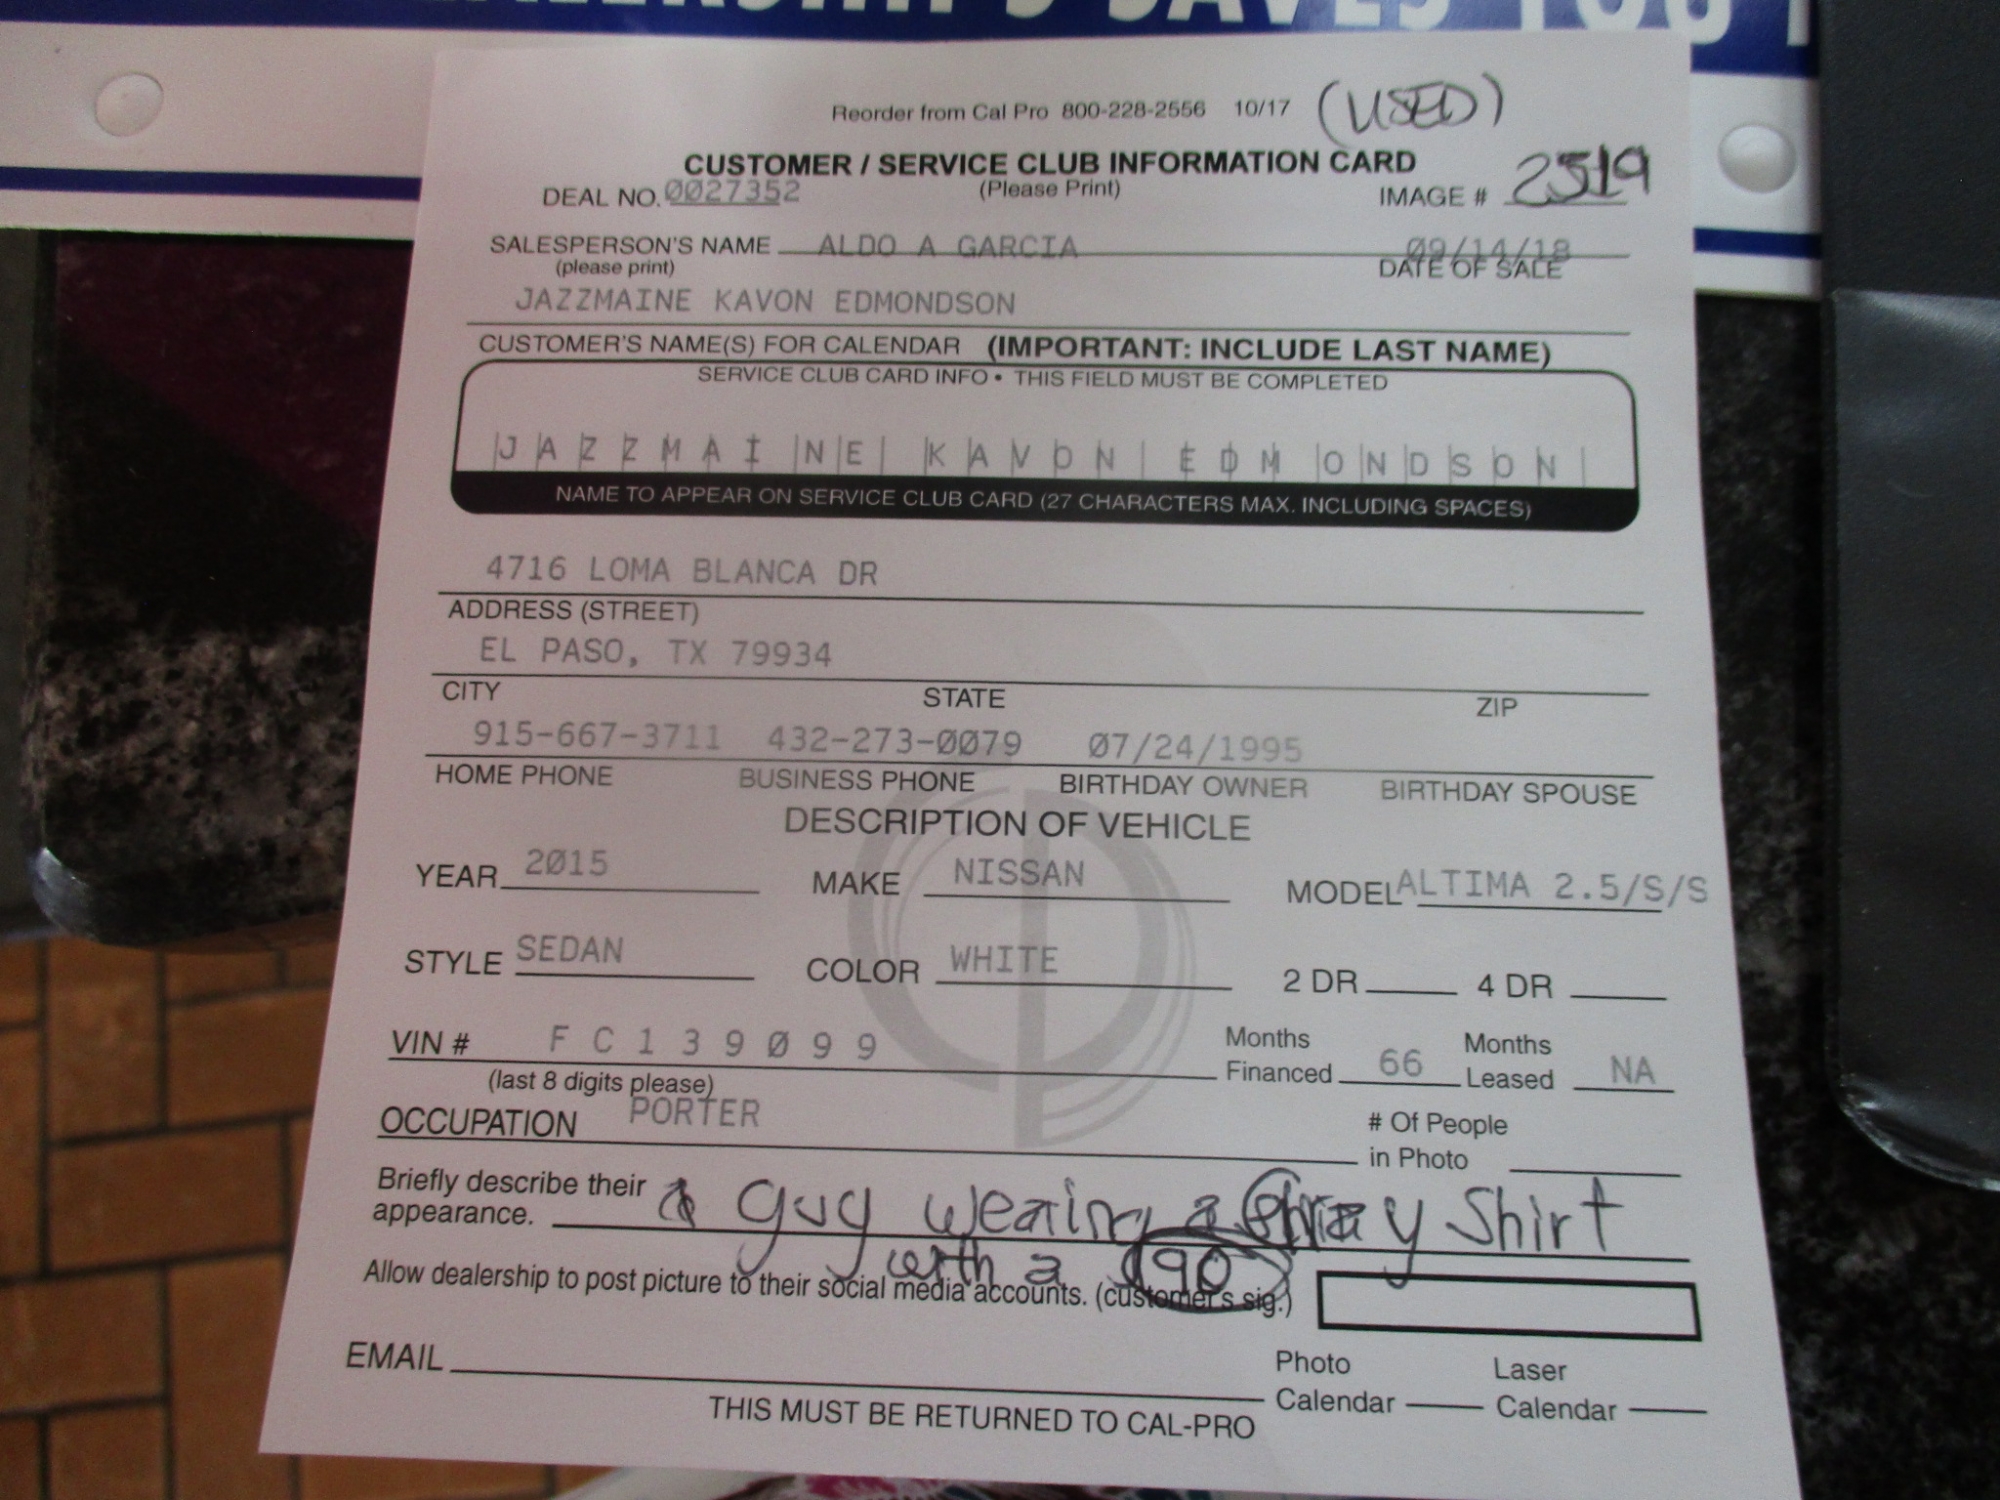 Reorder from Cal Pro 800-228-2556 10/17 (USED)
CUSTOMER / SERVICE CLUB INFORMATION CARD
DEAL NO. 0027352 (Please Print) IMAGE # 2519
SALESPERSON'S NAME ALDO A GARCIA 09/14/18
(please print) DATE OF SALE
JAZZMAINE KAVON EDMONDSON
CUSTOMER'S NAME(S) FOR CALENDAR (IMPORTANT: INCLUDE LAST NAME)
SERVICE CLUB CARD INFO • THIS FIELD MUST BE COMPLETED
JAZZMAINE KAVON EDMONDSON
NAME TO APPEAR ON SERVICE CLUB CARD (27 CHARACTERS MAX. INCLUDING SPACES)
4716 LOMA BLANCA DR
ADDRESS (STREET)
EL PASO, TX 79934
CITY STATE ZIP
915-667-3711 432-273-0079 07/24/1995
HOME PHONE BUSINESS PHONE BIRTHDAY OWNER BIRTHDAY SPOUSE
DESCRIPTION OF VEHICLE
YEAR 2015 MAKE NISSAN MODEL ALTIMA 2.5/S/S
STYLE SEDAN COLOR WHITE 2 DR 4 DR
VIN # F C 1 3 9 0 9 9 Months Financed 66 Months Leased NA
(last 8 digits please)
OCCUPATION PORTER # Of People in Photo
Briefly describe their appearance. a guy wearing a Gray Shirt
with a (90)
Allow dealership to post picture to their social media accounts. (customer's sig.)
EMAIL Photo Calendar Laser Calendar
THIS MUST BE RETURNED TO CAL-PRO